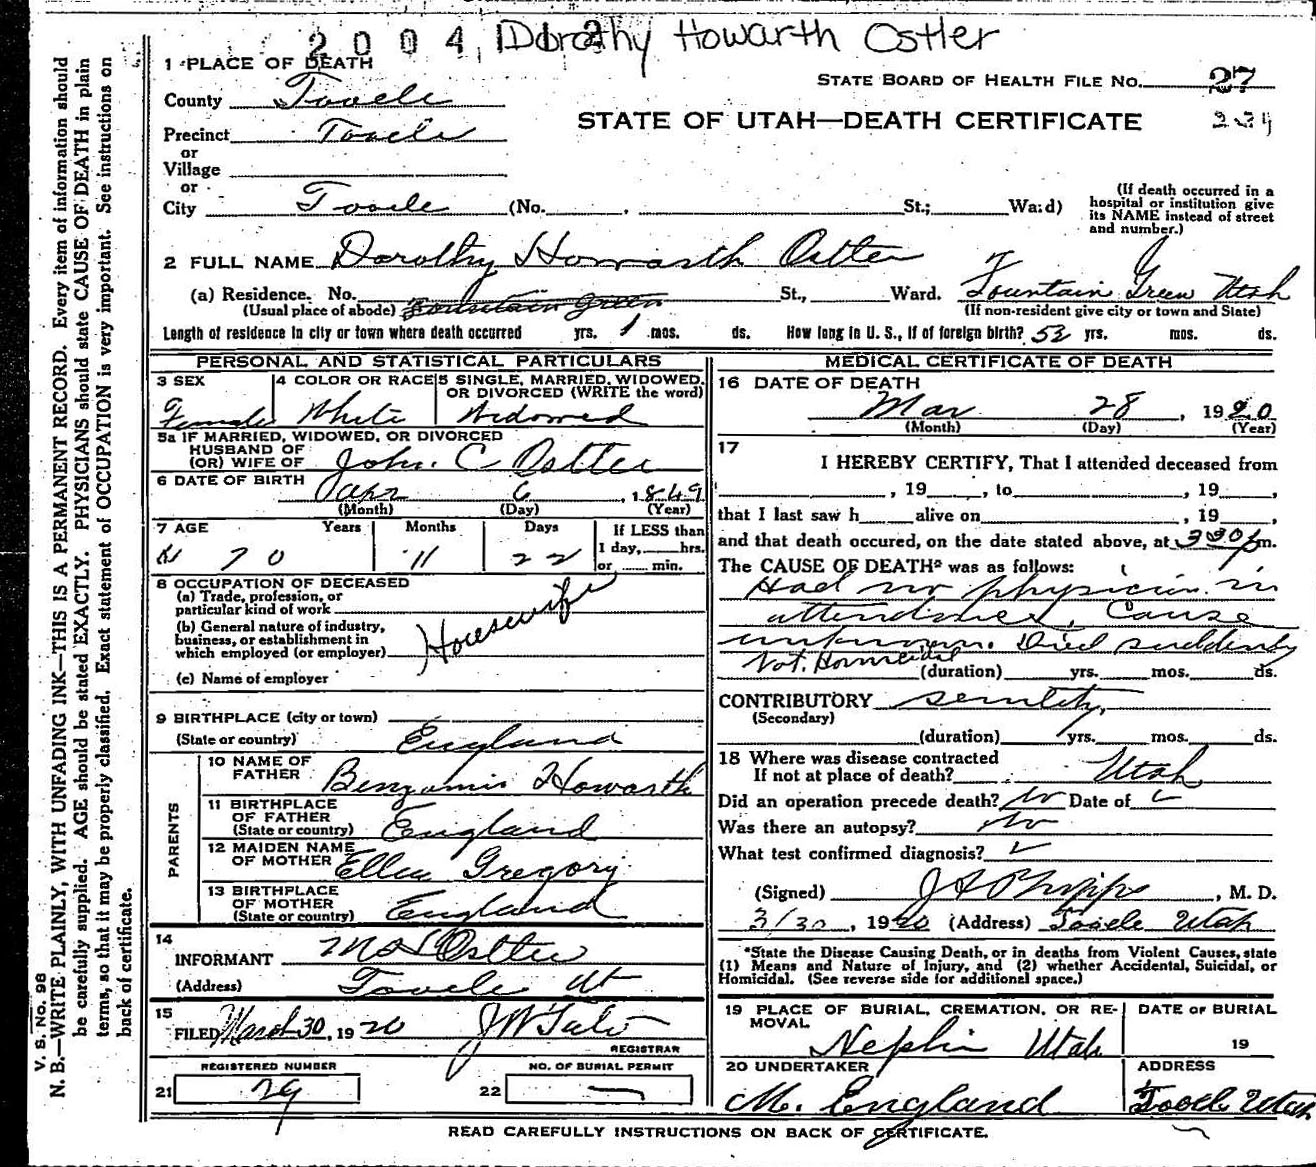 2004 Dorothy Howarth Ostler
1 PLACE OF DEATH
STATE BOARD OF HEALTH FILE No. 27
County Tooele
STATE OF UTAH—DEATH CERTIFICATE
Precinct Tooele
or
Village
or
City Tooele (No. , St.; Ward)
(If death occurred in a
hospital or institution give
its NAME instead of street
and number.)
2 FULL NAME Dorothy Howarth Ostler
(a) Residence. No. Fountain Green St., Ward. Fountain Green Utah
(Usual place of abode) (If non-resident give city or town and State)
Length of residence in city or town where death occurred yrs. 1 mos. ds. How long in U. S., if of foreign birth? 53 yrs. mos. ds.
PERSONAL AND STATISTICAL PARTICULARS
3 SEX 4 COLOR OR RACE 5 SINGLE, MARRIED, WIDOWED,
OR DIVORCED (WRITE the word)
Female White Widowed
5a IF MARRIED, WIDOWED, OR DIVORCED
HUSBAND OF
(OR) WIFE OF John. C Ostler
6 DATE OF BIRTH
6, 1849
(Month) (Day) (Year)
7 AGE Years Months Days If LESS than
70 11 22 1 day, hrs.
or min.
8 OCCUPATION OF DECEASED
(a) Trade, profession, or
particular kind of work Housewife
(b) General nature of industry,
business, or establishment in
which employed (or employer)
(c) Name of employer
9 BIRTHPLACE (city or town)
(State or country) England
PARENTS
10 NAME OF
FATHER Benjamin Howarth
11 BIRTHPLACE
OF FATHER
(State or country) England
12 MAIDEN NAME
OF MOTHER Ellen Gregory
13 BIRTHPLACE
OF MOTHER
(State or country) England
14
INFORMANT Ostler
(Address) Tooele Ut
15
FILED March 30, 1920
REGISTRAR
REGISTERED NUMBER NO. OF BURIAL PERMIT
21 29 22
MEDICAL CERTIFICATE OF DEATH
16 DATE OF DEATH
Mar 28, 1920
(Month) (Day) (Year)
17
I HEREBY CERTIFY, That I attended deceased from
, 19 , to , 19 ,
that I last saw h alive on , 19 ,
and that death occured, on the date stated above, at 330 p m.
The CAUSE OF DEATH* was as follows:
Had no physician in
attendance, Cause
unknown. Died suddenly
Not. Homicide
(duration) yrs. mos. ds.
CONTRIBUTORY senility,
(Secondary)
(duration) yrs. mos. ds.
18 Where was disease contracted
If not at place of death? Utah
Did an operation precede death? no Date of
Was there an autopsy? no
What test confirmed diagnosis?
(Signed) J A Phipps, M. D.
3/30, 1920 (Address) Tooele Utah
*State the Disease Causing Death, or in deaths from Violent Causes, state
(1) Means and Nature of Injury, and (2) whether Accidental, Suicidal, or
Homicidal. (See reverse side for additional space.)
19 PLACE OF BURIAL, CREMATION, OR RE-
MOVAL
DATE OF BURIAL
Nephi Utah 19
20 UNDERTAKER ADDRESS
M. England Tooele Utah
READ CAREFULLY INSTRUCTIONS ON BACK OF CERTIFICATE.
V. S. No. 98
N. B.—WRITE PLAINLY, WITH UNFADING INK—THIS IS A PERMANENT RECORD. Every item of information should
be carefully supplied. AGE should be stated EXACTLY. PHYSICIANS should state CAUSE OF DEATH in plain
terms, so that it may be properly classified. Exact statement of OCCUPATION is very important. See instructions on
back of certificate.